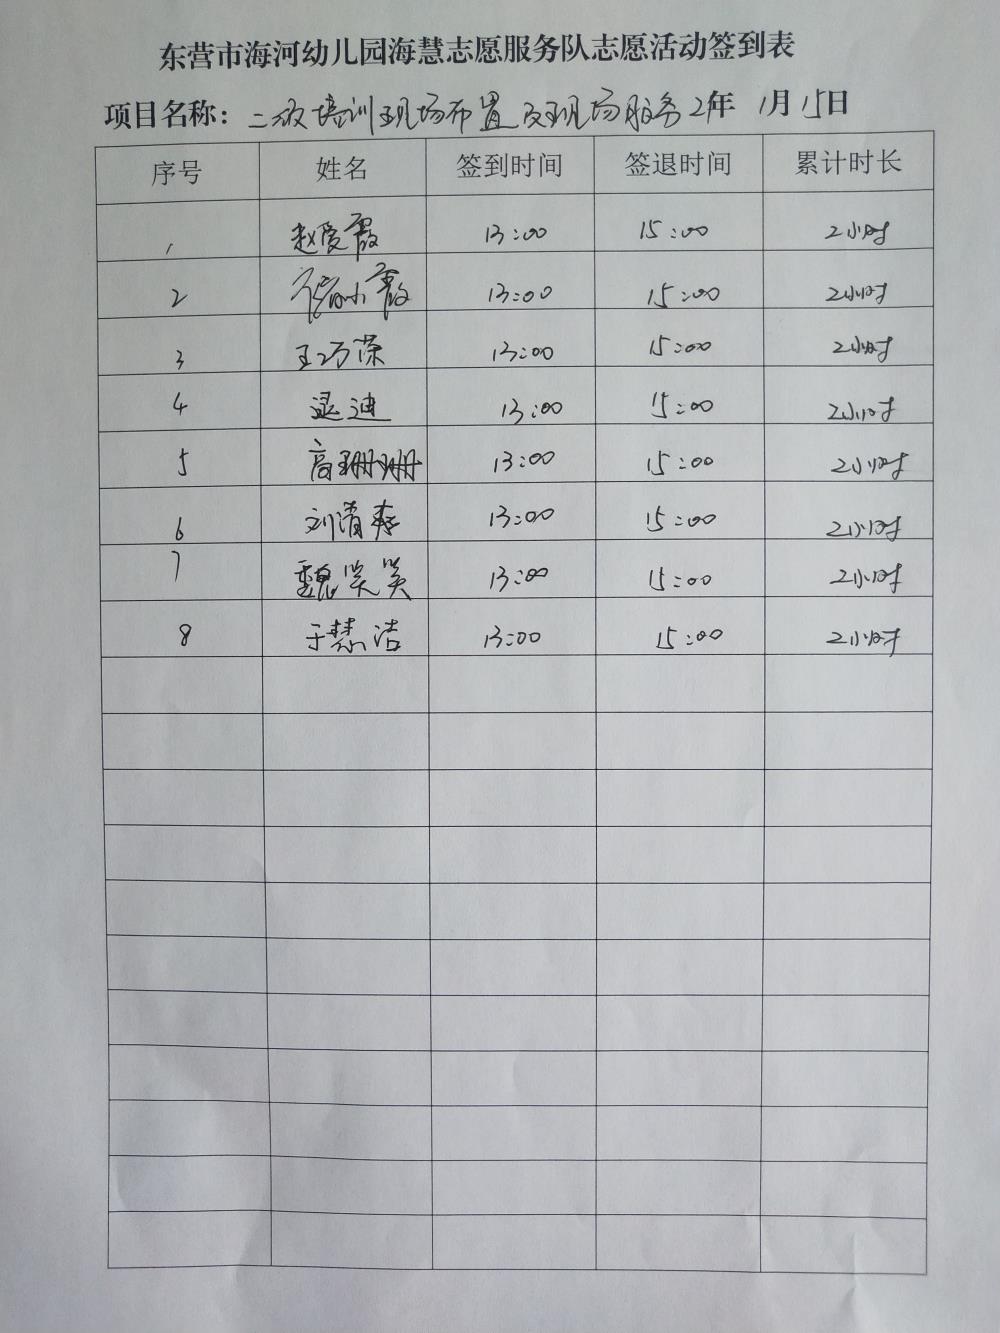 东营市海河幼儿园海慧志愿服务队志愿活动签到表
项目名称：二次培训现场布置及现场服务 21年 1月15日
序号 姓名 签到时间 签退时间 累计时长
1 赵爱霞 13:00 15:00 2小时
2 徐小霞 13:00 15:00 2小时
3 王巧荣 13:00 15:00 2小时
4 逯迪 13:00 15:00 2小时
5 高珊珊 13:00 15:00 2小时
6 刘清爽 13:00 15:00 2小时
7 魏笑笑 13:00 15:00 2小时
8 于慧洁 13:00 15:00 2小时